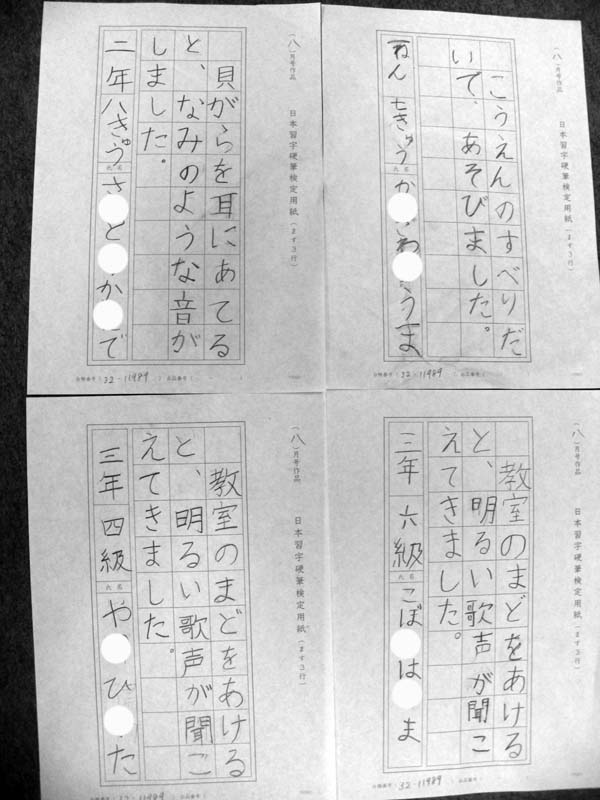 （八）月号作品
日本習字硬筆検定用紙（ます３行）
貝がらを耳にあてる
と、なみのような音が
しました。
二年 八きゅう
氏名
さ と か で
32-11989
（八）月号作品
日本習字硬筆検定用紙（ます３行）
こうえんのすべりだ
いで、あそびました。
一ねん 七きゅう
氏名
か わ うま
32-11989
（八）月号作品
日本習字硬筆検定用紙（ます３行）
教室のまどをあける
と、明るい歌声が聞こ
えてきました。
三年 四級
氏名
や ひ た
32-11989
（八）月号作品
日本習字硬筆検定用紙（ます３行）
教室のまどをあける
と、明るい歌声が聞こ
えてきました。
三年 六級
氏名
こば は ま
32-11989